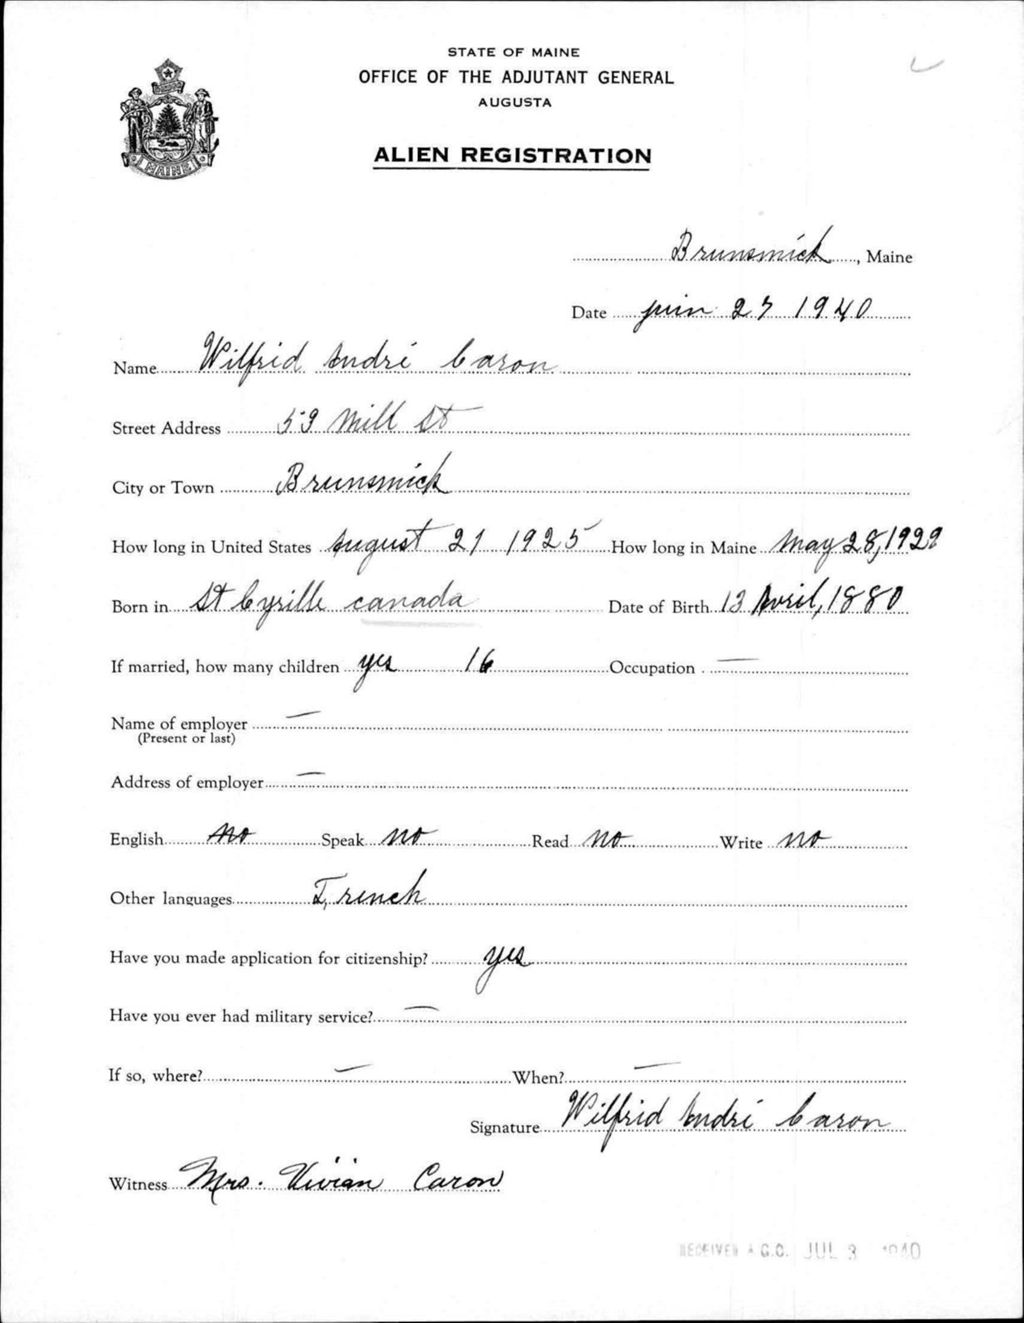 STATE OF MAINE
OFFICE OF THE ADJUTANT GENERAL
AUGUSTA
ALIEN REGISTRATION
MAINE
Brunswick, Maine
Date juin 27 1940
Name Wilfrid André Caron
Street Address 59 Mill St
City or Town Brunswick
How long in United States August 21 1925 How long in Maine May 28, 1929
Born in St Cyrille canada Date of Birth 13 Avril, 1880
If married, how many children yes 16 Occupation —
Name of employer —
(Present or last)
Address of employer —
English no Speak no Read no Write no
Other languages French
Have you made application for citizenship? yes
Have you ever had military service? —
If so, where? — When? —
Signature Wilfrid André Caron
Witness Mrs. Vivian Caron
RECEIVED A.G.O. JUL 3 1940